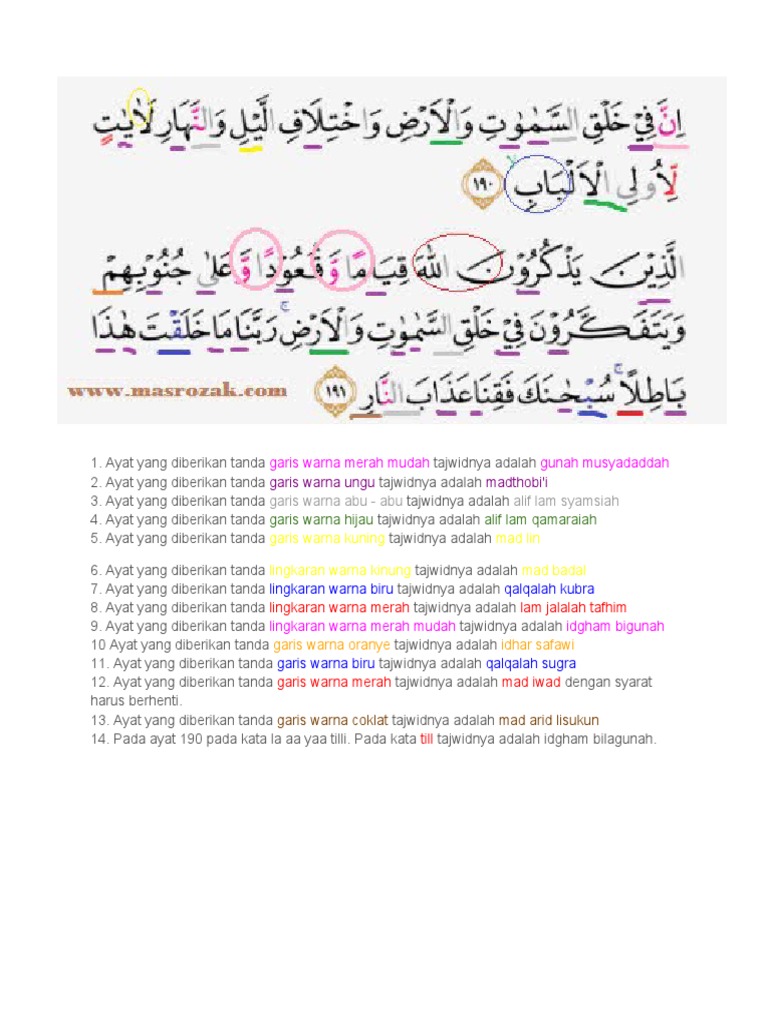 اِنَّ فِيْ خَلْقِ السَّمٰوٰتِ وَالْاَرْضِ وَاخْتِلَافِ الَّيْلِ وَالنَّهَارِ لَاٰيٰتٍ
لِّاُولِى الْاَلْبَابِ ۙ ١٩٠
الَّذِيْنَ يَذْكُرُوْنَ اللّٰهَ قِيَامًا وَّقُعُوْدًا وَّعَلٰى جُنُوْبِهِمْ
وَيَتَفَكَّرُوْنَ فِيْ خَلْقِ السَّمٰوٰتِ وَالْاَرْضِۚ رَبَّنَا مَا خَلَقْتَ هٰذَا
بَاطِلًاۚ سُبْحٰنَكَ فَقِنَا عَذَابَ النَّارِ ١٩١
www.masrozak.com
1. Ayat yang diberikan tanda garis warna merah mudah tajwidnya adalah gunah musyadaddah
2. Ayat yang diberikan tanda garis warna ungu tajwidnya adalah madthobi'i
3. Ayat yang diberikan tanda garis warna abu - abu tajwidnya adalah alif lam syamsiah
4. Ayat yang diberikan tanda garis warna hijau tajwidnya adalah alif lam qamaraiah
5. Ayat yang diberikan tanda garis warna kuning tajwidnya adalah mad lin
6. Ayat yang diberikan tanda lingkaran warna kinung tajwidnya adalah mad badal
7. Ayat yang diberikan tanda lingkaran warna biru tajwidnya adalah qalqalah kubra
8. Ayat yang diberikan tanda lingkaran warna merah tajwidnya adalah lam jalalah tafhim
9. Ayat yang diberikan tanda lingkaran warna merah mudah tajwidnya adalah idgham bigunah
10 Ayat yang diberikan tanda garis warna oranye tajwidnya adalah idhar safawi
11. Ayat yang diberikan tanda garis warna biru tajwidnya adalah qalqalah sugra
12. Ayat yang diberikan tanda garis warna merah tajwidnya adalah mad iwad dengan syarat
harus berhenti.
13. Ayat yang diberikan tanda garis warna coklat tajwidnya adalah mad arid lisukun
14. Pada ayat 190 pada kata la aa yaa tilli. Pada kata till tajwidnya adalah idgham bilagunah.